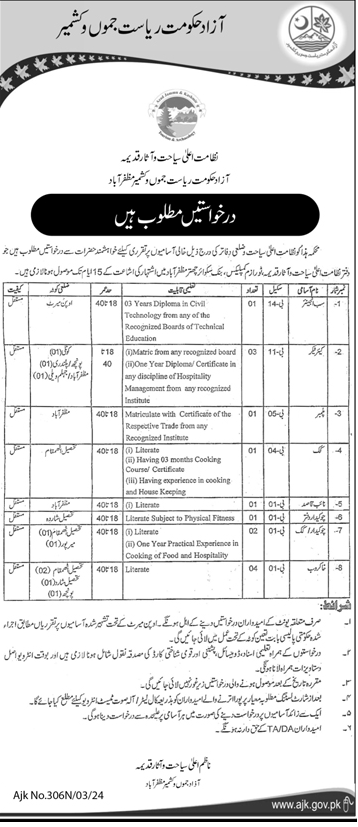 آزاد حکومت ریاست جموں و کشمیر
نظامت اعلیٰ سیاحت و آثار قدیمہ
آزاد حکومت ریاست جموں و کشمیر مظفرآباد
درخواستیں مطلوب ہیں
محکمہ ہذا کو نظامت اعلیٰ سیاحت و ضلعی دفاتر کی درج ذیل خالی آسامیوں پر تقرری کیلئے خواہشمند حضرات سے درخواستیں مطلوب ہیں جو
دفتر نظامت اعلیٰ سیاحت و آثار قدیمہ، ٹورازم کمپلیکس، بنک سکوائر چھتر مظفرآباد میں اشتہار کی اشاعت کے 15 ایام تک موصول ہونا لازمی ہیں۔
نمبر شمار نام آسامی سکیل تعداد تعلیمی قابلیت حد عمر ضلعی کوٹہ کیفیت
1- سب انجینئر بی-14 01 03 Years Diploma in Civil Technology from any of the Recognized Boards of Technical Education 18 تا 40 اوپن میرٹ مستقل
2- کیئر ٹیکر بی-11 03 (i)Matric from any recognized board (ii)One Year Diploma/ Certificate in any discipline of Hospitality Management from any recognized Institute 18 تا 40 کوٹلی (01) پونچھ/پلندری (01) مظفرآباد/جہلم ویلی (01) مستقل
3- پلمبر بی-05 01 Matriculate with Certificate of the Respective Trade from any Recognized Institute 18 تا 40 مظفرآباد مستقل
4- کک بی-04 01 (i) Literate (ii) Having 03 months Cooking Course/ Certificate (iii) Having experience in cooking and House Keeping 18 تا 40 تحصیل اٹھمقام مستقل
5- نائب قاصد بی-01 01 (i) Literate 18 تا 40 مظفرآباد مستقل
6- چوکیدار بی-01 01 Literate Subject to Physical Fitness 18 تا 40 تحصیل شاردہ مستقل
7- چوکیدار/کک بی-01 02 (i) Literate (ii) One Year Practical Experience in Cooking of Food and Hospitality 18 تا 40 تحصیل اٹھمقام (01) میرپور (01) مستقل
8- خاکروب بی-01 04 Literate 18 تا 40 تحصیل اٹھمقام (02) تحصیل شاردہ (01) پونچھ (01) مستقل
شرائط:
۱۔ صرف متعلقہ یونٹ کے امیدواران درخواستیں دینے کے اہل ہونگے۔ اوپن میرٹ کے تحت مشتہر شدہ آسامیوں پر تقرریاں مطابق اجراء
شدہ حکومتی پالیسی بابت تعین کوٹہ کے تحت عمل میں لائی جائیں گی۔
۲۔ درخواستوں کے ہمراہ تعلیمی اسناد، ڈومیسائل، پشتنی اور قومی شناختی کارڈ کی مصدقہ نقول شامل ہونا لازمی ہیں اور بوقت انٹرویو اصل
دستاویزات ہمراہ لانا ہونگی۔
۳۔ مقررہ تاریخ کے بعد موصول ہونے والی درخواستیں زیر غور نہیں لائی جائیں گی۔
۴۔ بعد از شارٹ لسٹنگ مطلوبہ معیار پر پورا اترنے والے امیدواران کو بذریعہ کال لیٹر/ایس ایم ایس ٹیسٹ انٹرویو کیلئے مطلع کیا جائے گا۔
۵۔ ایک سے زائد آسامیوں پر درخواست دینے کی صورت میں ہر آسامی پر علیحدہ سے درخواست دینا ہوگی۔
۶۔ امیدواران TA/DA کے حق دار نہ ہونگے۔
ناظم اعلیٰ سیاحت و آثار قدیمہ
آزاد جموں و کشمیر مظفرآباد
Ajk No.306N/03/24
www.ajk.gov.pk